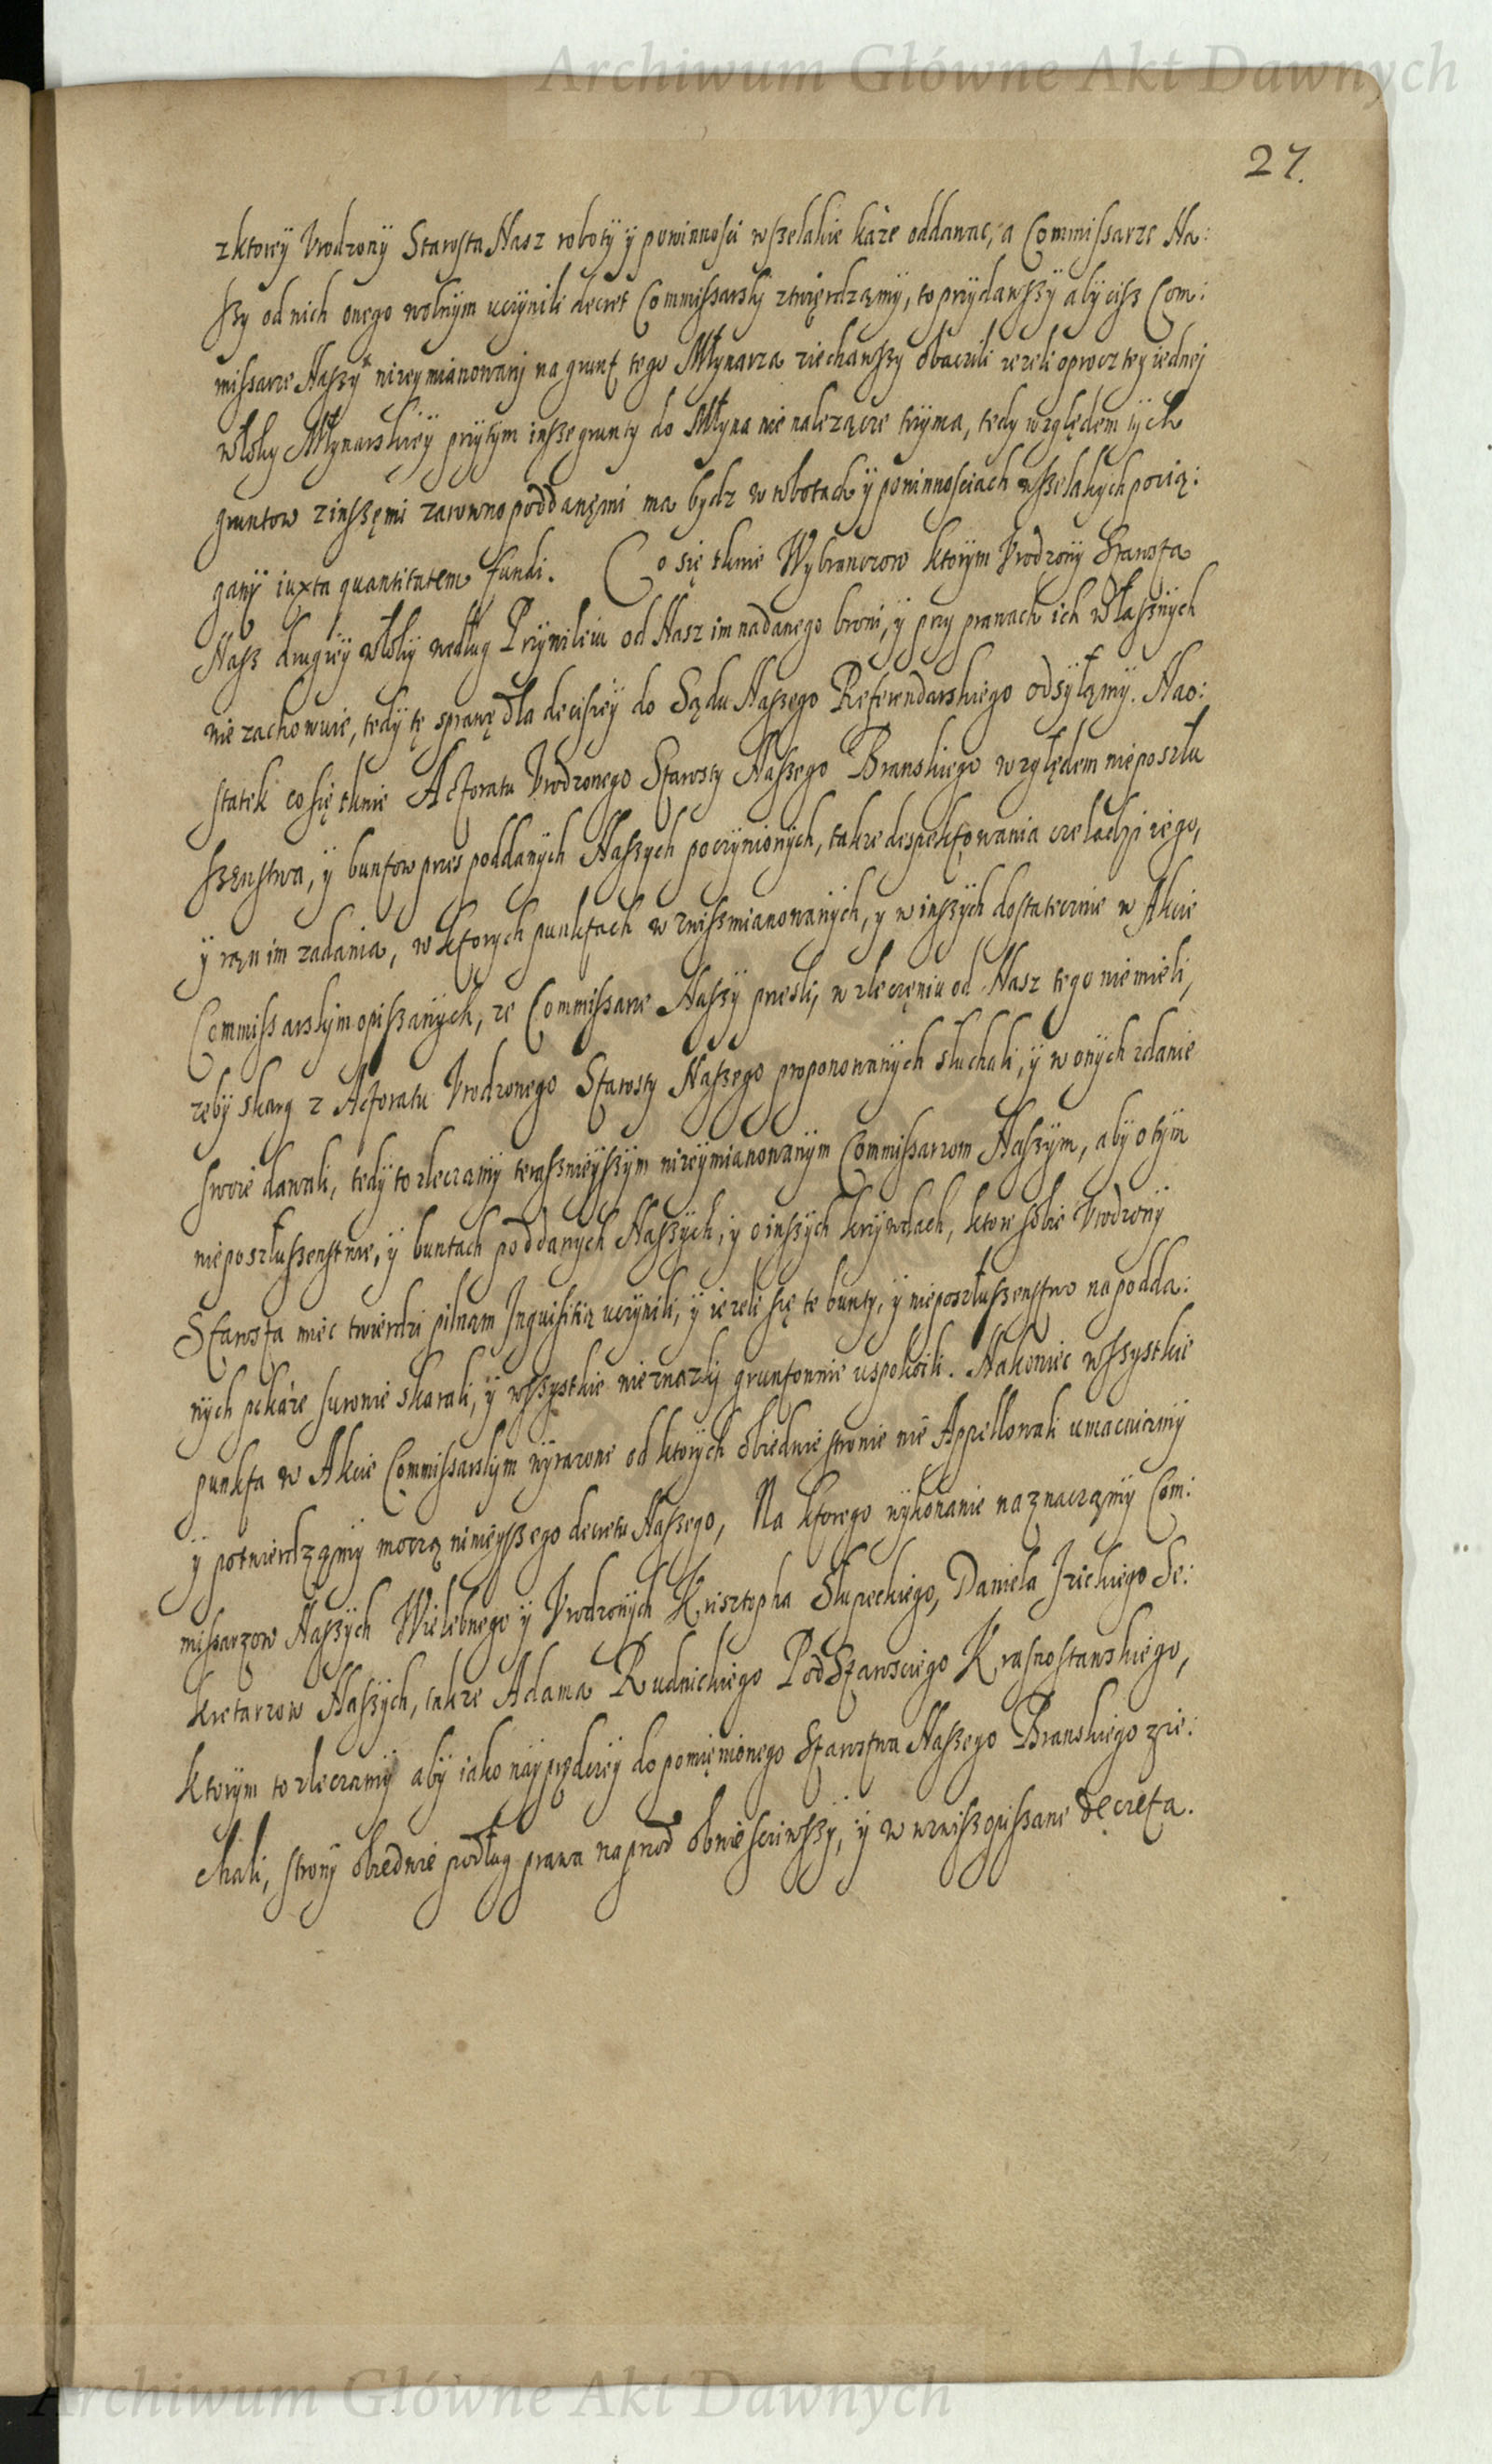 Archiwum Główne Akt Dawnych
27.
z ktorey Vrodzony Starosta Nasz roboty ÿ powinnosci wszelakie każe oddawac, a Commissarze Na:
szy od nich onego wolnÿm vczÿnili decret Commissarski ztwięrdzamÿ, to przÿdawszÿ abÿ cisz Com:
missarze Naszÿ nizeymianowani na grunt tego Młynarza ziechawszÿ obaczili iezeli oprocz tey iednej
włoky Młÿnarskieÿ przÿtÿm insze grunty do Młyna nie nalezącze trzÿma, tedy względem tÿch
gruntow z inszęmi zarowno poddanęmi ma bydz w robotach ÿ powinnosciach wszelakych pocią:
ganÿ iuxta quantitatem fundi. Co się tknie Wybranczow ktorÿm Vrodzonÿ Starosta
Nasz drugieÿ włokÿ według Przÿwileiu od Nasz im nadanego broni, ÿ przy prawach ich własznÿch
nie zachowuie, tedÿ tę sprawę dla decisieÿ do Sądu Naszego Referendarskiego odsÿłamÿ. Na o:
statek co się tknie Actoratu Vrodzonego Starosty Naszego Branskiego względem nieposzłu
szenstwa, ÿ buntow przes poddanÿch Naszÿch poczÿnionÿch, takze despektowania czeladzi iego,
ÿ ran im zadania, w ktorych punktach w zwiszmianowanÿch, y w inszÿch dostatecznie w Akcie
Commissarskim opiszanÿch, ze Commissarze Naszÿ przesli, w zleczęniu od Nasz tego nie mieli,
zebÿ skarg z Actoratu Vrodzonego Starosty Naszego proponowanÿch słuchali, ÿ w onÿch zdanie
swoie dawali, tedÿ to zleczamÿ terasznieÿszÿm nizeÿmianowanÿm Commissarzom Naszÿm, abÿ o tÿm
nieposzłuszenstwie, ÿ buntach poddanÿch Naszÿch, ÿ o inszÿch krzÿwdach, ktore sobie Vrodzonÿ
Starosta miec twierdzi pilnąm Inquisitią vczÿnili, ÿ iezeli się te bunty, ÿ nieposzłuszenstwo na podda:
nÿch pokaże surowie skarali, ÿ wszystkie nieznazki gruntownie uspokoili. Nakoniec wszystkie
punkta w Akcie Commissarskim wÿrazone od ktorÿch obiedwie stronie nie Appellowali umacniamÿ
ÿ potwierdzamÿ moczą ninieÿszego decretu Naszego, Na ktorego wÿkonanie naznaczamÿ Com:
missarzow Naszÿch Wielebnego ÿ Vrodzonÿch Krisztopha Słupeckiego, Daniela Izickiego Se:
kretarzow Naszÿch, takze Adama Rudnickiego PodStarosciego Krasnostawskiego,
ktorÿm to zleczamÿ abÿ iako naÿprędzeÿ do pomięnionego Starostwa Naszego Branskiego zie:
chali, stronÿ obiedwie podług prawa naprzod obwiesciwszÿ, ÿ w wzwiszopiszane decreta.
Archiwum Główne Akt Dawnych